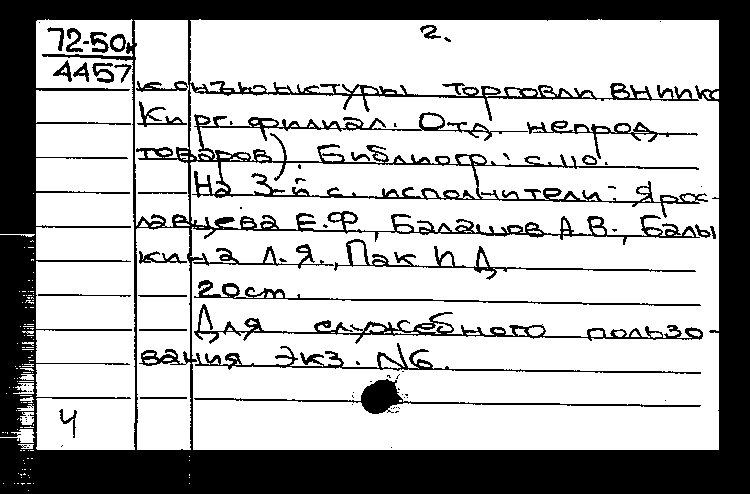 2.
72-50к
4457
конъюнктуры торговли. ВНИИК
Кирг. филиал. Отд. непрод.
товаров). Библиогр.: с.110.
На 3-й с. исполнители: Ярос-
лавцева Е.Ф., Балашов А.В., Балы
кина Л.Я., Пак И.Д.
20cm.
Для служебного пользо-
вания. Экз. N6.
4